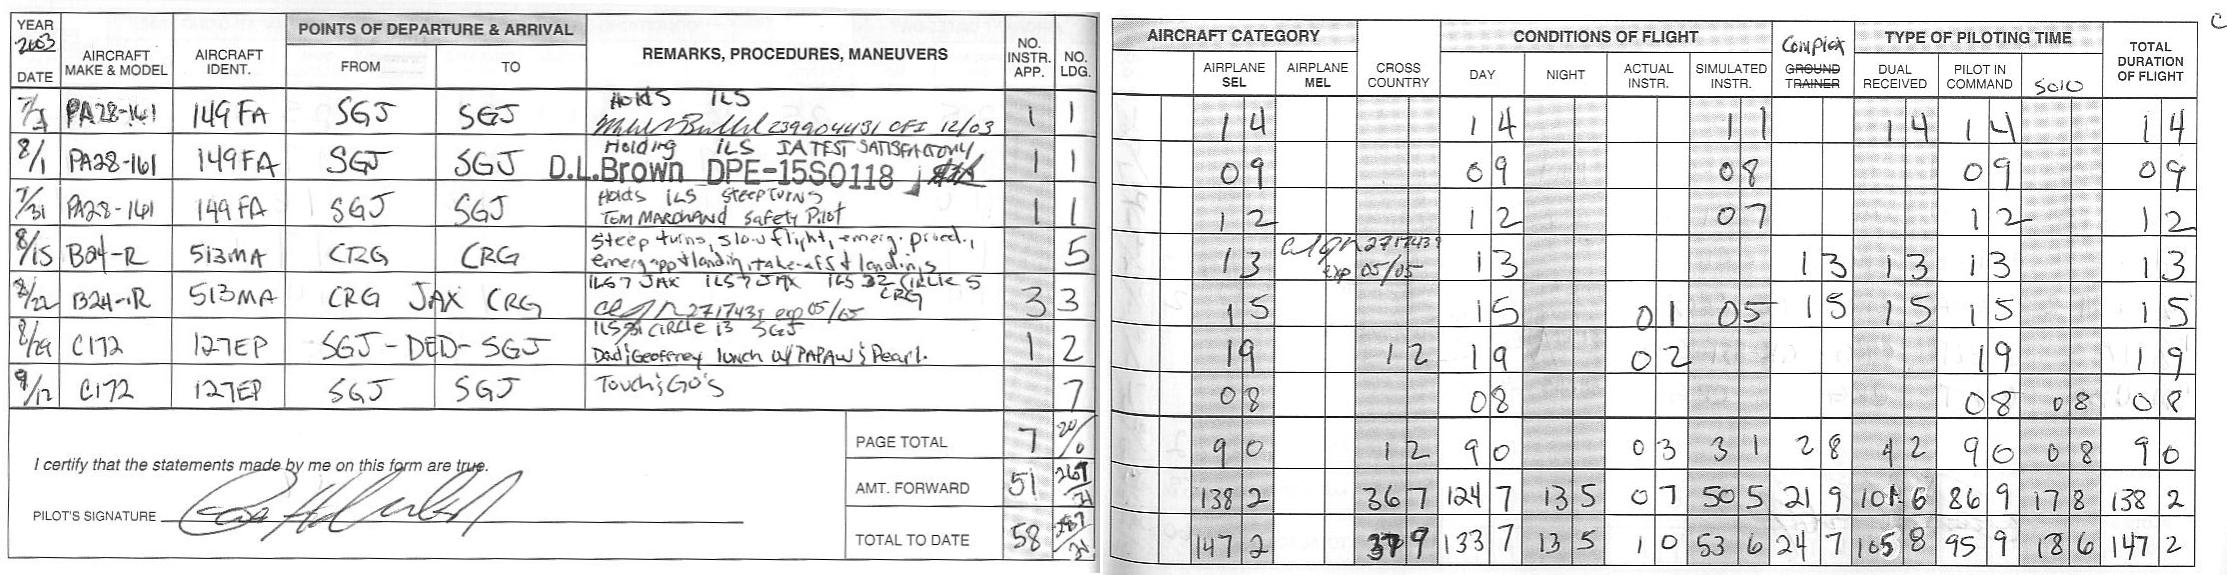 YEAR 2003 DATE AIRCRAFT MAKE & MODEL AIRCRAFT IDENT. POINTS OF DEPARTURE & ARRIVAL FROM TO REMARKS, PROCEDURES, MANEUVERS NO. INSTR. APP. NO. LDG. AIRCRAFT CATEGORY AIRPLANE SEL AIRPLANE MEL CROSS COUNTRY CONDITIONS OF FLIGHT DAY NIGHT ACTUAL INSTR. SIMULATED INSTR. Complex GROUND TRAINER TYPE OF PILOTING TIME DUAL RECEIVED PILOT IN COMMAND Solo TOTAL DURATION OF FLIGHT
PA28-161 149FA SGJ SGJ Holds ILS 239904431 CFI 12/03 1 1 1 4 1 4 1 1 1 4 1 4 1 4
8/1 PA28-161 149FA SGJ SGJ Holding ILS IA TEST SATISFACTORY D.L.Brown DPE-15SO118 1 1 0 9 0 9 0 8 0 9 0 9
7/31 PA28-161 149FA SGJ SGJ Holds ILS STEEP TURNS TOM MARCHAND Safety Pilot 1 1 1 2 1 2 0 7 1 2 1 2
8/15 B24-R 513MA CRG CRG Steep turns, slow flight, emerg. proced., emerg app + landing, take-offs + landings 5 1 3 2717439 exp 05/05 1 3 1 3 1 3 1 3 1 3
8/22 B24-R 513MA CRG JAX CRG ILS 7 JAX ILS 7 JAX ILS 32 CIRCLE 5 CRG 2717439 exp 05/05 3 3 1 5 1 5 0 1 0 5 1 5 1 5 1 5 1 5
8/29 C172 127EP SGJ-DED-SGJ ILS 31 CIRCLE 13 SGJ Dad; Geoffrey lunch w/ PAPAW & Pearl. 1 2 1 9 1 2 1 9 0 2 1 9 1 9
9/12 C172 127EP SGJ SGJ Touch & GO's 7 0 8 0 8 0 8 0 8 0 8
I certify that the statements made by me on this form are true.
PILOT'S SIGNATURE
PAGE TOTAL 7 20/0 9 0 1 2 9 0 0 3 3 1 2 8 4 2 9 0 0 8 9 0
AMT. FORWARD 51 267/31 138 2 36 7 124 7 13 5 0 7 50 5 21 9 101 6 86 9 17 8 138 2
TOTAL TO DATE 58 287/31 147 2 37 9 133 7 13 5 1 0 53 6 24 7 105 8 95 9 18 6 147 2